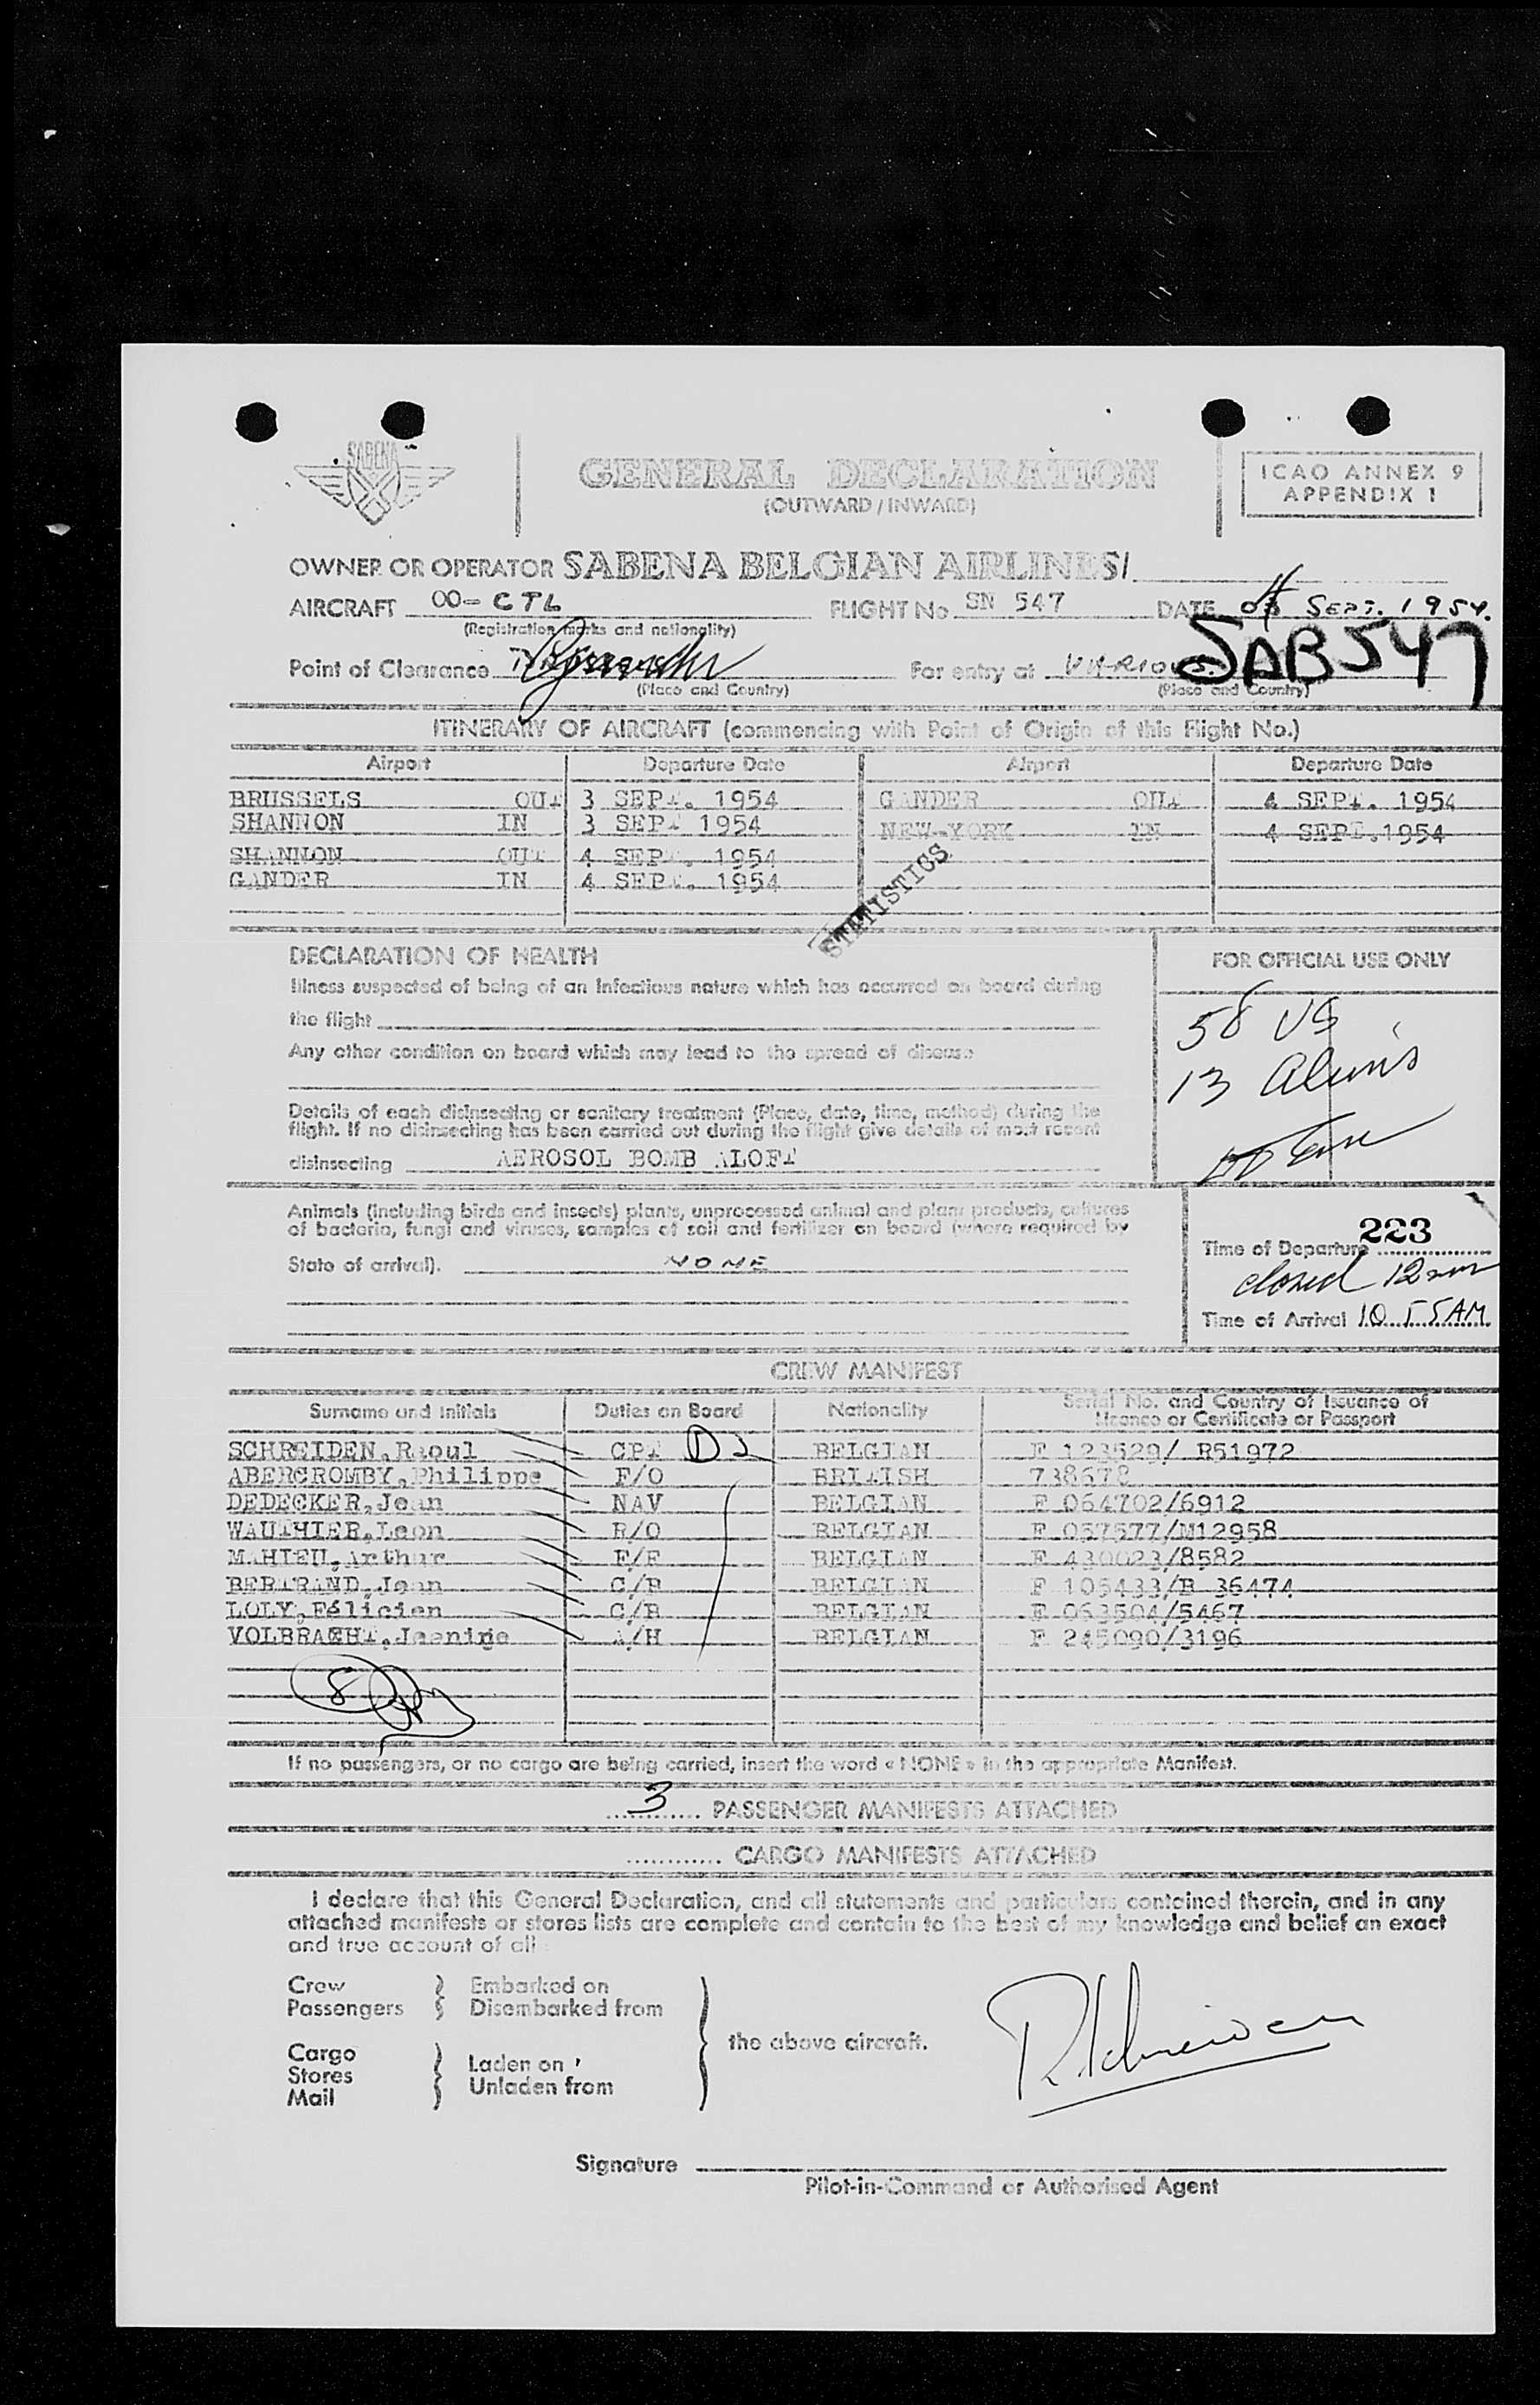 SABENA
GENERAL DECLARATION
(OUTWARD / INWARD)
ICAO ANNEX 9
APPENDIX 1
OWNER OR OPERATOR SABENA BELGIAN AIRLINES/
AIRCRAFT OO-CTL FLIGHT No SN 547 DATE 04 SEPT. 1954.
(Registration marks and nationality)
SAB 547
Point of Clearance For entry at VARIOUS.
(Place and Country) (Place and Country)
ITINERARY OF AIRCRAFT (commencing with Point of Origin of this Flight No.)
Airport Departure Date Airport Departure Date
BRUSSELS OUT 3 SEPT. 1954 GANDER OUT 4 SEPT. 1954
SHANNON IN 3 SEPT 1954 NEW-YORK IN 4 SEPT.1954
SHANNON OUT 4 SEPT. 1954
GANDER IN 4 SEPT. 1954
STATISTICS
DECLARATION OF HEALTH
FOR OFFICIAL USE ONLY
Illness suspected of being of an infectious nature which has occurred on board during
the flight
Any other condition on board which may lead to the spread of disease
58 US
13 Aliens
Details of each disinsecting or sanitary treatment (Place, date, time, method) during the
flight. If no disinsecting has been carried out during the flight give details of most recent
disinsecting AEROSOL BOMB ALOFT
Animals (including birds and insects) plants, unprocessed animal and plant products, cultures
of bacteria, fungi and viruses, samples of soil and fertilizer on board (where required by
State of arrival). NONE
223
Time of Departure
closed 12
Time of Arrival 10.55 AM
CREW MANIFEST
Surname and Initials Duties on Board Nationality Serial No. and Country of Issuance of
licence or Certificate or Passport
SCHREIDEN, Raoul CPT D2 BELGIAN E 123529/ B51972
ABERCROMBY, Philippe F/O BRITISH 738678
DEDECKER, Jean NAV BELGIAN F 064702/6912
WAUTHIER, Leon R/O BELGIAN F 057577/M12958
MAHIEU, Arthur F/E BELGIAN F 430023/8582
BERTRAND, Jean C/B BELGIAN F 105433/B 36474
LOLY, Félicien C/B BELGIAN F 063504/5467
VOLBRACHT, Jeanine A/H BELGIAN F 245090/3196
8
If no passengers, or no cargo are being carried, insert the word « NONE » in the appropriate Manifest.
3 PASSENGER MANIFESTS ATTACHED
CARGO MANIFESTS ATTACHED
I declare that this General Declaration, and all statements and particulars contained therein, and in any
attached manifests or stores lists are complete and contain to the best of my knowledge and belief an exact
and true account of all
Crew Embarked on
Passengers Disembarked from
the above aircraft.
Cargo
Stores Laden on
Mail Unladen from
R. Schreiden
Signature
Pilot-in-Command or Authorised Agent